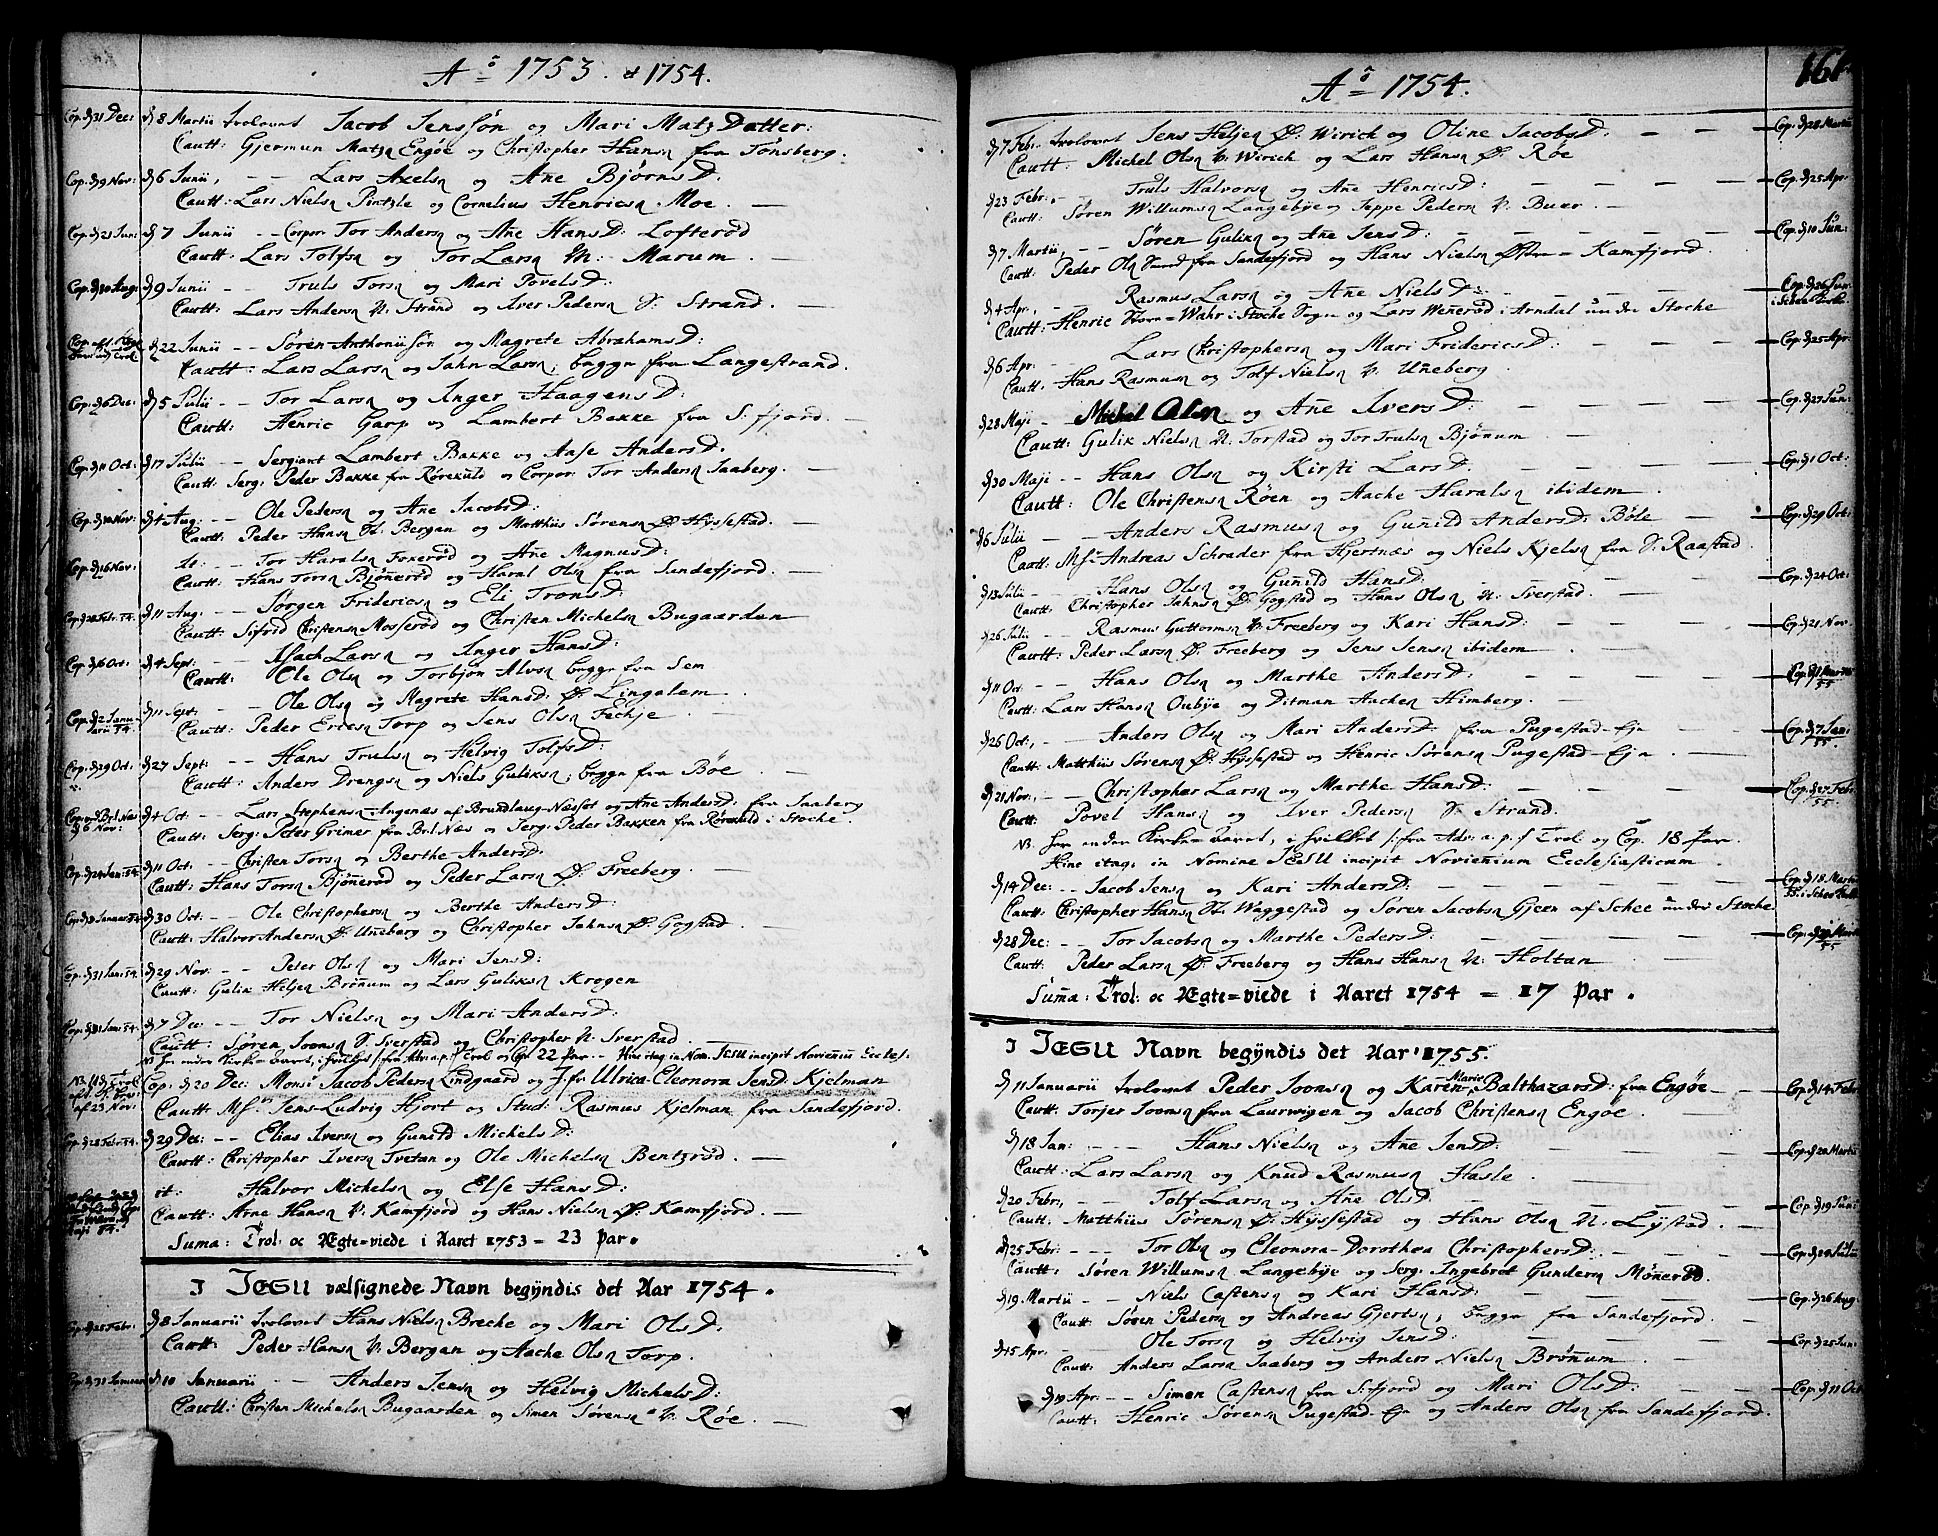 Aō 1753. & 1754.
Cop. d. 31 Dec: d. 8 Martii trolovet Jacob Jenssøn og Mari Matz Datter:
Cautt: Gjermun Matzn Engøe og Christopher Hansn fra Tønsberg.
Cop. d. 9 Nov: d. 6 Junii, - - Lars Axelsn og Añe BjørnsD:
Cautt: Lars Nielsn Pintzle og Cornelius Henricsn Moe. -
Cop. d. 21 Jun: d. 7 Junii - - Corpor: Tor Andersn og Añe HansD: Lofterød
Cautt: Lars Tolfsn og Tor Larsn M: Marum. -
Cop. d. 10 Aug: d. 9 Junii - - Truls Torsn og Mari PovelsD:
Cautt: Lars Andersn N: Strand og Iver Pedersn S: Strand. -
d. 22 Junii - - Søren Anthoniisøn og Magrete AbrahamsD:
Cautt: Lars Larsn og Jahn Larsn, begge fra Langestrand.
Cop. d. 6 Dec: d. 5 Julii - - Tor Larsn og Anger HaagensD:
Cautt: Henric Garp og Lambert Bakke fra S:fjord. -
Cop. d. 11 Oct: d. 17 Julii - - Sergiant Lambert Bakke og Aase AndersD:
Cautt: Serg: Peder Bakke fra Rørekuld og Corpor: Tor Andersn Saaberg. -
Cop. d. 10 Nov: d. 4 Aug: - - Ole Pedersn og Ane JacobsD:
Cautt: Peder Hansn V: Bergan og Matthiis Sørensn Ø: Hyssestad. -
Cop. d. 16 Nov: it: - - Tor Haralsn Foxerød og Añe MagnusD:
Cautt: Hans Torsn Bjønerød og Haral Olsn fra Sandefjord. -
Cop. d. 28 Febr: 54. d. 11 Aug: - - Jørgen Fridericsn og Eli TronsD:
Cautt: Sifrid Christensn Mosserød og Christen Michelsn Bugaarden
Cop. d. 6 Oct: d. 4 Sept: - - Isach Larsn og Anger HansD:
Cautt: Ole Olsn og Torbjøn Alvsn begge fra Sem
Cop. d. 2 Januarii 54. d. 11 Sept: - - Ole Olsn og Magrete HansD: Ø: Lingelem
Cautt: Peder Ericsn Torp og Jens Olsn Fechje. -
Cop. d. 29 Oct: d. 27 Sept: - - Hans Trulsn og Helvig TolfsD:
Cautt: Anders Drengsn og Niels Guliksn, begge fra Bøe. -
Cop. ved Brl. Næs d. 6 Nov: d. 4 Oct - - Lars Stephensn Ingenæs af Brundlaug-Næsset og Añe AndersD: fra Saaberg
Cautt: Serg: Peter Grimer fra Brl. Næs og Serg: Peder Bakken fra Rørekuld i Stoche.
Cop. d. 24 Jan: 54. d. 11 Oct: - - Christen Torsn og Berthe AndersD:
Cautt: Hans Torsn Bjønerød og Peder Larsn Ø: Freeberg. -
d. 30 Oct: - - Ole Christophersn og Berthe AndersD:
Cautt: Halvor Andersn Ø: Uñeberg og Christopher Jahnsn Ø: Gogstad. -
Cop. d. 31 Jan: 54. d. 29 Nov: - - Peter Olsn og Mari JensD:
Cautt: Gulik Heljen Brøñum og Lars Guliksn Krogen
Cop. d. 31 Jan: 54. d. 7 Dec: - - Tor Nielsn og Mari AndersD:
Cautt: Søren Joonsn S: Sverstad og Christopher N: Sverstad.
NB før endre Kirke-Aaret, i hvilket /: fra Adv: a. p. :/ Trol: og Cop: 22 Par. - Hinc itaq; in Nom: JESU incipit Novieñiū Eccles:
Cop: d. 20 Dec: Monsr Jacob Pedersn Lindgaard og Jfr Ulrica-Eleonora JensD: Kjelman
af 23 Nov:
Cautt: Msr Jens-Ludvig Hjort og Stud: Rasmus Kjelman fra Sandefjord.
Cop. d. 28 Febr: 54. d. 29 Dec: - - Elias Iversn og Gunild MichelsD:
Cautt: Christopher Iversn Tvetan og Ole Michelsn Bentzrød. -
it: Halvor Michelsn og Else HansD:
Cautt: Arne Hansn V: Kamfjord og Hans Nielsn Ø: Kamfjord. -
Suma: Trol: oc Ægte-viede i Aaret 1753 - 23 Par.
I JESU velsignede Navn begÿndis det Aar 1754.
Cop. d. 28 Febr: d. 8 Januarii trolovet Hans Nielsn Breche og Mari OlsD:
Cautt: Peder Hansn V: Bergan og Aache Olsn Torp.
Cop. d. 31 Januarii d. 10 Januarii - - Anders Jensn og Helvig MichelsD:
Cautt: Christen Michelsn Bugaarden og Simen Sørensn V: Røe. -
Aō 1754. 161.
d. 7 Febr: trolovet Jens Heljen Ø: Wirich og Oline JacobsD: - - Cop. d. 28 Martii
Cautt: Michel Olsn V: Wirich og Lars Hansn Ø: Røe
d. 23 Febr: - - Truls Halvorsn og Añe HenricsD: - - Cop. d. 25 Apr:
Cautt: Søren Willumsn Langebye og Jeppe Pedersn V: Buer. -
d. 7 Martii, - - Søren Guliksn og Añe JensD: - - Cop. d. 10 Jun:
Cautt: Peder Olsn Smed fra Sandefjord og Hans Nielsn Østre-Kamfjord.
d. 4 Apr: - Rasmus Larsn og Añe NielsD: - - Cop. d. 26 Jun:
Cautt: Henric Store-Wahr i Stoche Sogn og Lars Weñerød i Arndal under Stoche
d. 6 Apr: - Lars Christophersn og Mari FridericsD: - - Cop. d. 25 Apr:
Cautt: Hans Rasmusn og Tolf Nielsn V: Uñeberg.
d. 28 Maji - Michel Olsn og Añe IversD: - - Cop. d. 27 Jun:
Cautt: Gulik Nielsn N: Torstad og Tor Trulsn Bjønum. -
d. 30 Maji - - Hans Olsn og Kirsti LarsD. - - Cop. d. 1 Oct:
Cautt: Ole Christensn Røen og Aache Haralsn ibidem.
d. 6 Julii - - Anders Rasmusn og Guñild AndersD: Bøle - - Cop. d. 29 Oct:
Cautt: Msr Andreas Schrader fra Hjertnæs og Niels Kjelsn fra S: Raastad.
d. 13 Julii - - Hans Olsn og Guñild HansD: - - Cop. d. 24 Oct:
Cautt: Christopher Jahnsn Ø: Gogstad og Hans Olsn N: Sverstad. -
d. 26 Julii - - Rasmus Guttormsn V: Freeberg og Kari HansD: - - Cop. d. 21 Nov.
Cautt: Peder Larsn Ø: Freeberg og Jens Jensn ibidem. -
d. 11 Oct: - - Hans Olsn og Marthe AndersD:
Cautt: Lars Hansn Ouebye og Ditman Aachen Himberg.
d. 26 Oct: - Anders Olsn og Mari AndersD: fra Pugestad-Eje - Cop. d. 7 Jan: 55.
Cautt: Matthiis Sørensn Ø: Hyssestad og Henric Sørensn Pugestad-Eje. -
d. 21 Nov: - - Christopher Larsn og Marthe HansD: - - Cop. d. 27 Febr: 55.
Cautt: Povel Hansn og Iver Pedersn S: Strand.
NB. her endes Kirke-Aaret, i hvilket /: fra Adv: a. p. :/ Trol: og Cop. 18 Par.
Hinc itaq; in Nomine JESU incipit Novieñium Ecclesiasticum.
d. 14 Dec: - - Jacob Jensn og Kari AndersD: - - Cop. d. 18 Martii
Cautt: Christopher Hansn V: Waggestad og Søren Jacobsn Gjeen af Schee under Stoche
d. 28 Dec: - - Tor Jacobsn og Marthe PedersD: - -
Cautt: Peder Larsn Ø: Freeberg og Hans Hansn N: Holtan
Suma: Trol: oc Ægte-viede i Aaret 1754 - 17 Par.
I JESU Navn begÿndis det Aar 1755.
d. 11 Januarii trolovet Peder Joonsn og Karen-Marie BalthazarsD: fra Engøe - Cop. d. 14 Febr:
Cautt: Torjer Joonsn fra Laurwigen og Jacob Christensn Engøe. -
d. 18 Jan: - - Hans Nielsn og Añe JensD: - - Cop. d. 20 Martii
Cautt: Lars Larsn og Knud Rasmusn Hasle.
d. 20 Febr: - - Tolf Larsn og Añe OlsD: - - Cop. d. 19 Junii
Cautt: Matthiis Sørensn Ø: Hyssestad og Hans Olsn N: Lÿstad. -
d. 25 Febr: - - Tor Olsn og Eleonora-Dorothea ChristophersD: - Cop. d. 29 Julii
Cautt: Søren Willumsn Langebÿe og Serg: Ingebret Gundersn Møñerød.
d. 19 Martii - - Niels Castensn og Kari HansD: - - Cop. d. 26 Aug:
Cautt: Søren Pedersn og Andreas Gjertsn, begge fra Sandefjord. -
d. 15 Apr: - Ole Torsn og Helvig JensD: - - Cop. d. 25 Junii
Cautt: Anders Larsn Saaberg og Anders Nielsn Brøñum. -
d. 19 Apr: - - Simen Castensn fra S:fjord og Mari OlsD: - - Cop. d. 11 Oct
Cautt: Henric Sørensn Pugestad-Eje og Anders Olsn fra Sandefjord.